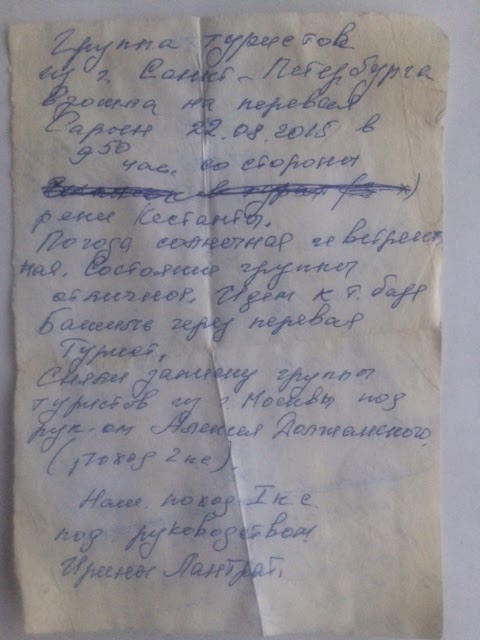 Группа туристов
из г. Санкт-Петербурга
взошла на перевал
Сарын 22.08.2015 в
9 50 час. со стороны
реки Кестанты.
Погода солнечная и ветрен
ная. Состояние группы
отличное. Идем к т. базе
Башиль через перевал
Турист.
Сняли записку группы
туристов из г. Москвы под
рук-ом Алексея Должанского
(поход 2 кс).
Наш поход I к.с.
под руководством
Ирины Лантрат.